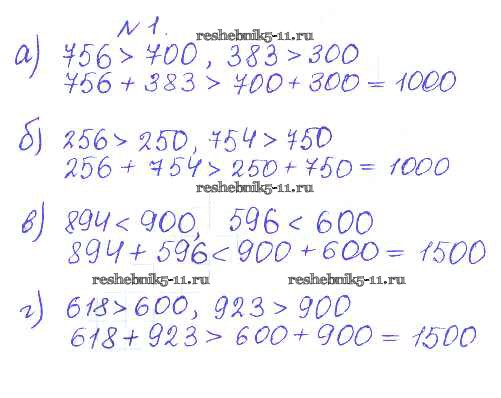 № 1.
reshebnik5-11.ru
а) 756 > 700, 383 > 300
756 + 383 > 700 + 300 = 1000
б) 256 > 250, 754 > 750
256 + 754 > 250 + 750 = 1000
reshebnik5-11.ru
в) 894 < 900, 596 < 600
894 + 596 < 900 + 600 = 1500
reshebnik5-11.ru reshebnik5-11.ru
г) 618 > 600, 923 > 900
618 + 923 > 600 + 900 = 1500